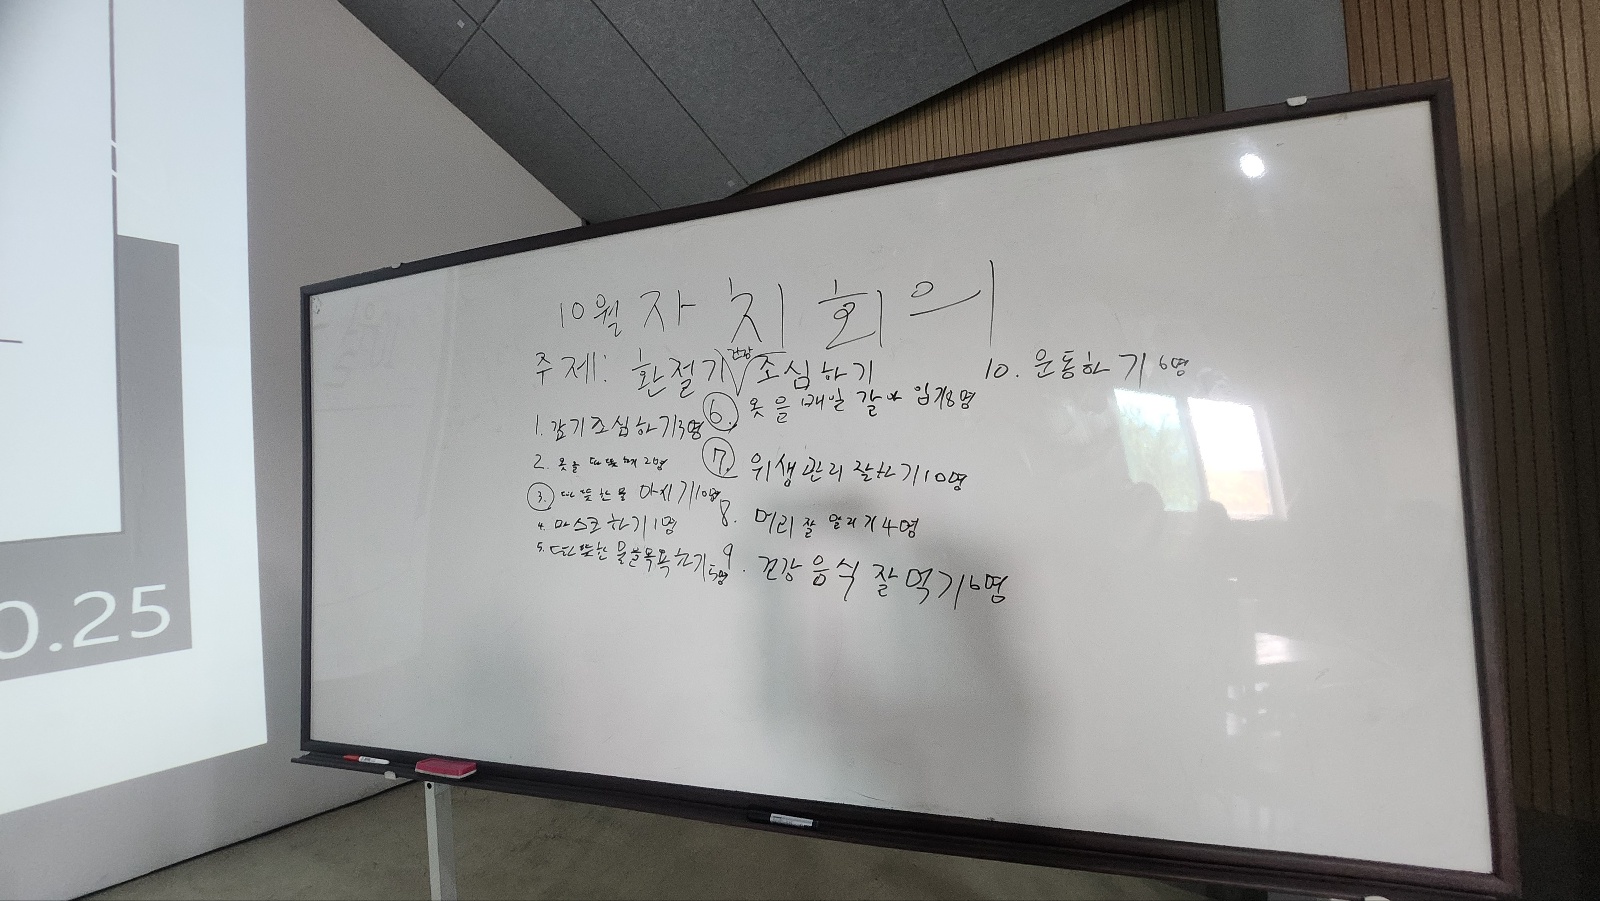 10월 자치회의
주제: 환절기 건강 조심하기
1. 감기조심하기3명
2. 옷을 따뜻하게 2명
3. 따뜻한물 마시기10명
4. 마스크하기1명
5. 따뜻한 물로목욕하기5명
6. 옷을 매일 갈아 입기8명
7. 위생관리 잘하기10명
8. 머리 잘 말리기4명
9. 건강 음식 잘 먹기6명
10. 운동하기 6명
0.25